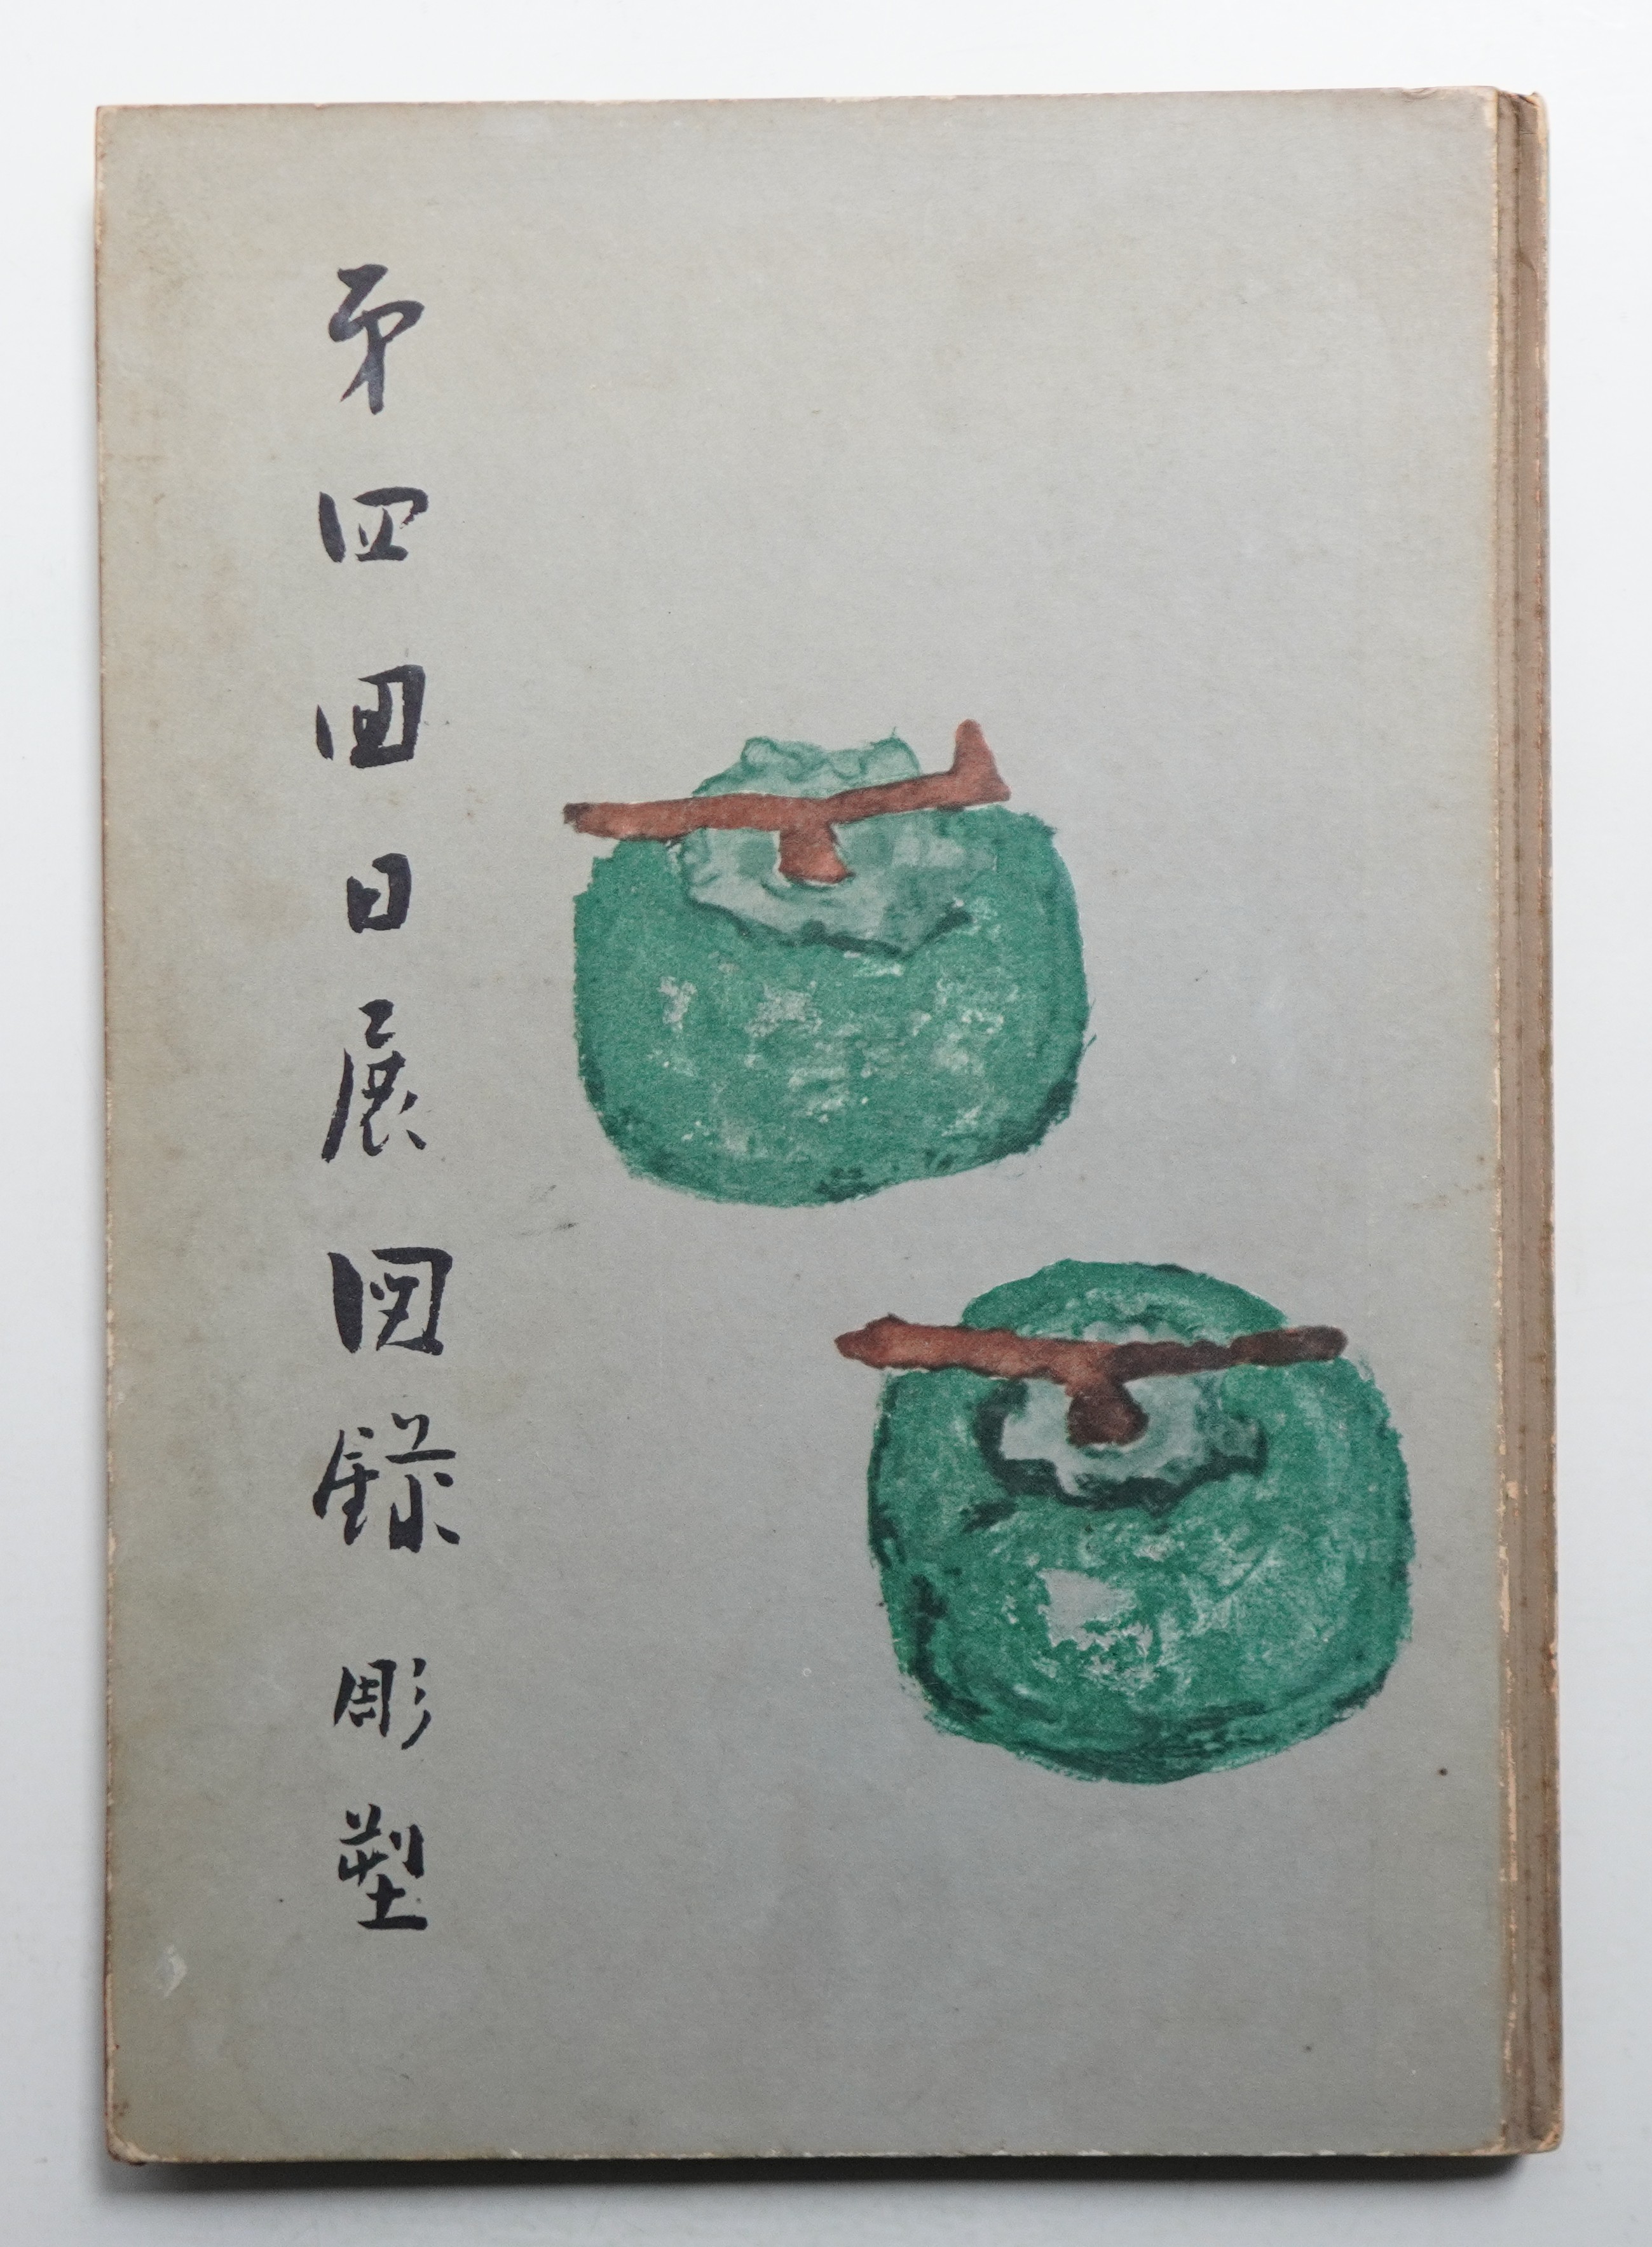 第四回日展図録 彫塑